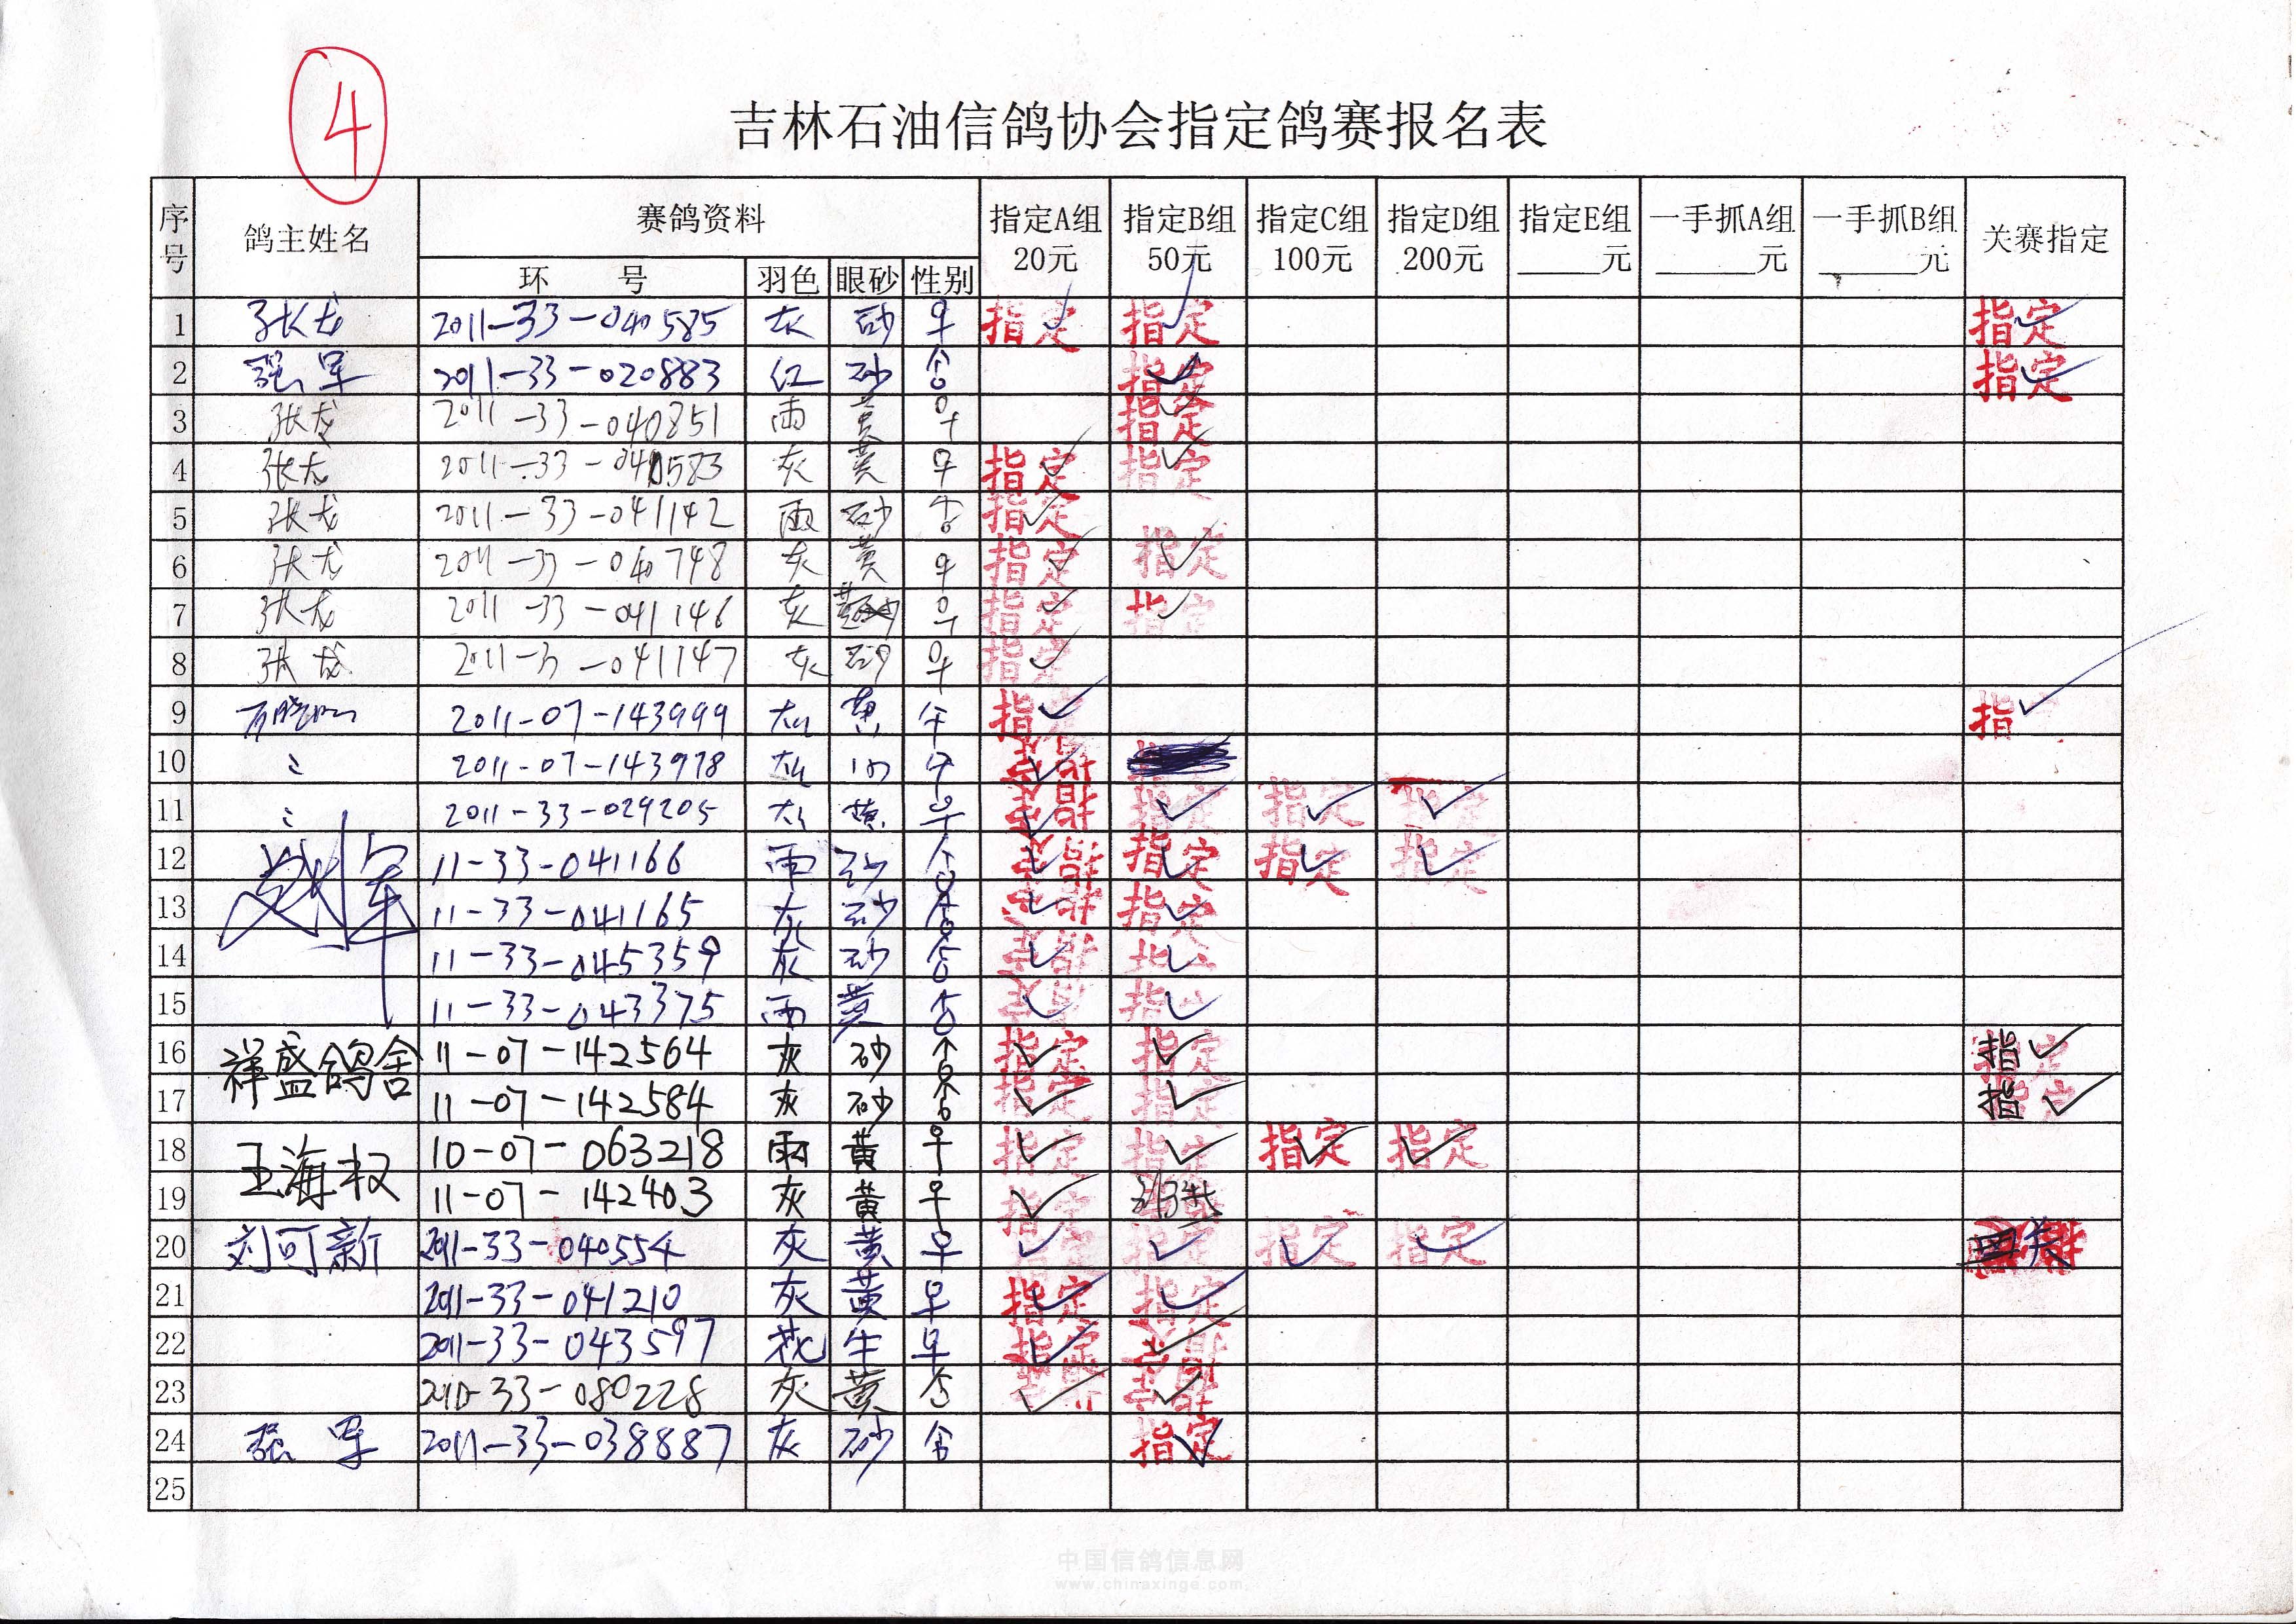 4
吉林石油信鸽协会指定鸽赛报名表
序号 鸽主姓名 赛鸽资料 指定A组 20元 指定B组 50元 指定C组 100元 指定D组 200元 指定E组 ____元 一手抓A组 ____元 一手抓B组 ____元 关赛指定
环 号 羽色 眼砂 性别
1 张龙 2011-33-040585 灰 砂 ♀ 指定✓ 指定✓ 指定✓
2 强军 2011-33-020883 红 砂 指定✓ 指定✓
3 张龙 2011-33-040851 雨 黄 ♀ 指定✓
4 张龙 2011-33-040583 灰 黄 ♀ 指定✓ 指定✓
5 张龙 2011-33-041142 雨 砂 指定✓
6 张龙 2011-33-040748 灰 黄 ♀ 指定✓ 指定✓
7 张龙 2011-33-041146 灰 黄 ♀ 指定✓ 指定✓
8 张龙 2011-3-041147 灰 砂 ♀ 指定✓
9 2011-07-143999 灰 黄 ♀ 指定✓ 指✓
10 2011-07-143978 灰 ♀ 指定✓
11 2011-33-029205 灰 黄 ♀ 指定✓ 指定✓ 指定✓ 指定✓
12 刘军 11-33-041166 雨 砂 指定✓ 指定✓ 指定✓ 指定✓
13 11-33-041165 灰 砂 指定✓ 指定✓
14 11-33-045359 灰 砂 指定✓ 指定✓
15 11-33-043375 雨 黄 指定✓ 指定✓
16 祥盛鸽舍 11-07-142564 灰 砂 指定✓ 指定✓ 指定✓
17 11-07-142584 灰 砂 指定✓ 指定✓ 指定✓
18 王海权 10-07-063218 雨 黄 ♀ 指定✓ 指定✓ 指定✓ 指定✓
19 11-07-142403 灰 黄 ♀ 指定✓
20 刘可新 2011-33-040554 灰 黄 ♀ 指定✓ 指定✓ 指定✓ 指定✓ 关
21 2011-33-041210 灰 黄 ♀ 指定✓ 指定✓
22 2011-33-043597 花 牛 ♀ 指定✓ 指定✓
23 2010-33-080228 灰 黄 指定✓ 指定✓
24 强军 2011-33-038887 灰 砂 指定✓
25
中国信鸽信息网
www.chinaxinge.com